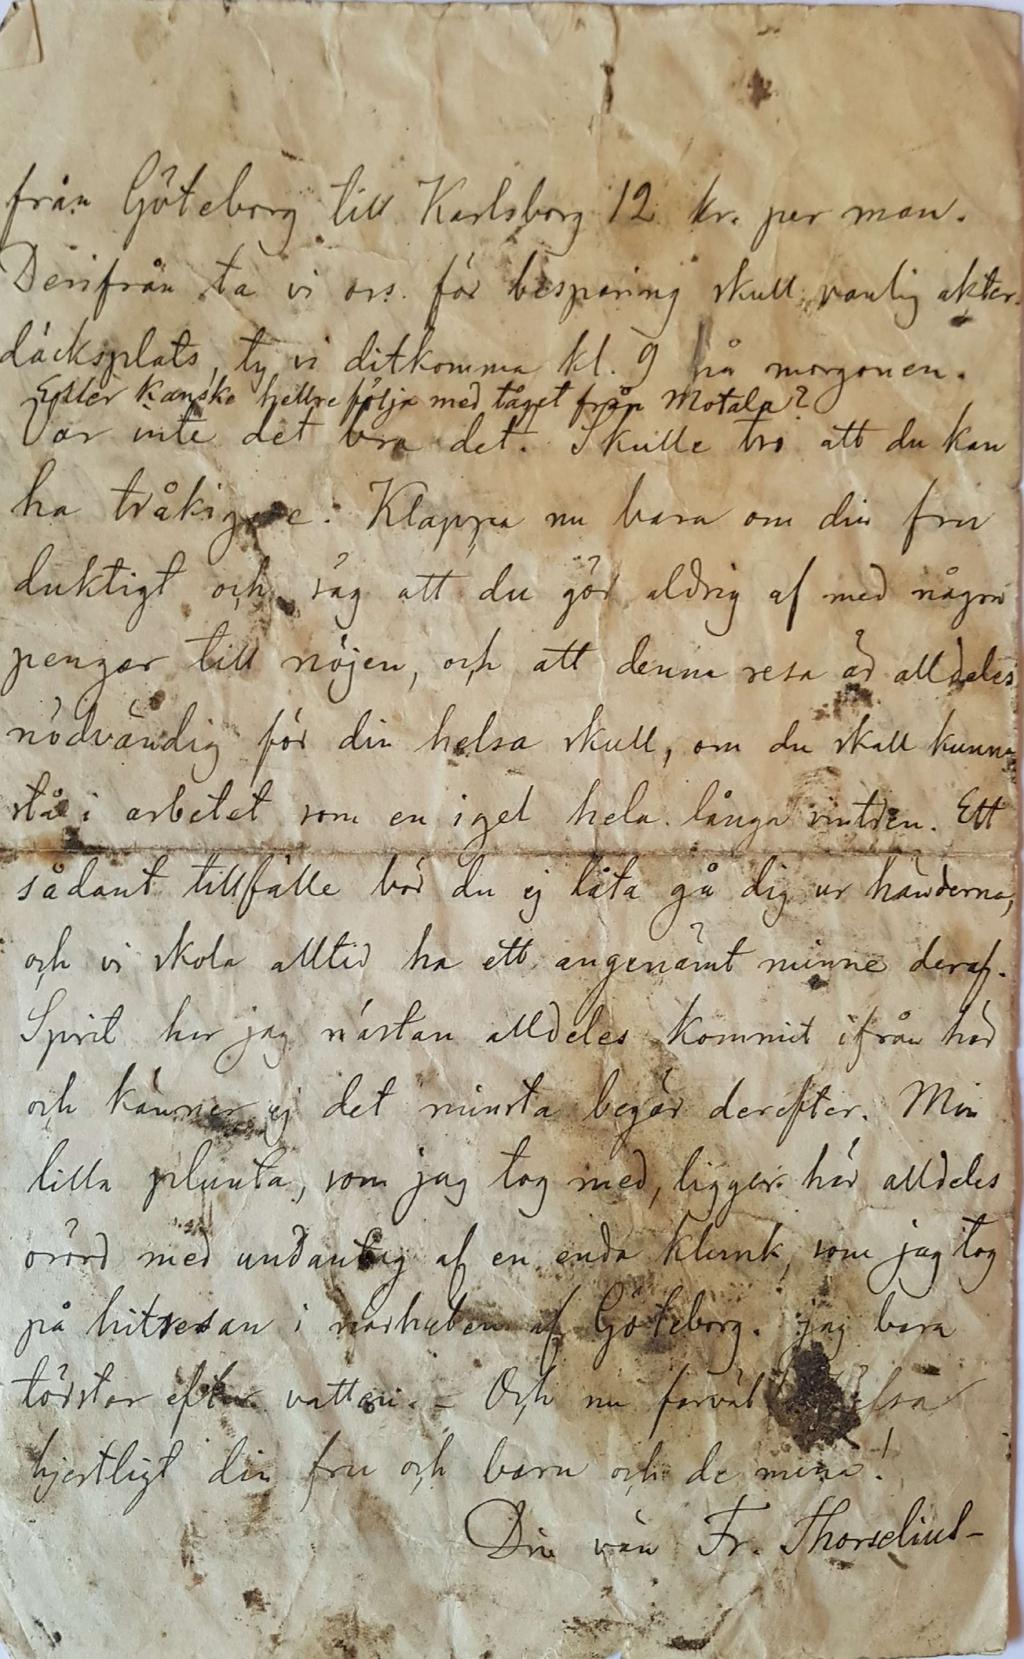 från Göteborg till Karlsborg 12 kr. per man.
Derifrån ta vi oss för besparing skull vanlig akter-
däcksplats, ty vi ditkomma kl. 9 på morgonen.
Eller kanske hellre följa med tåget från Motala?
Var inte det bra det. Skulle tro att du kan
ha tråkigare. Klappa nu bara om din fru
duktigt och säg att du gör aldrig af med några
pengar till nöjen, och att denna resa är alldeles
nödvändig för din helsa skull, om du skall kunna
stå i arbetet som en igel hela långa vintren. Ett
sådant tillfälle bör du ej låta gå dig ur händerna,
och vi skola alltid ha ett angenämt minne deraf.
Sprit har jag nästan alldeles kommit ifrån här
och känner ej det minsta begär derefter. Min
lilla plunta, som jag tog med, ligger här alldeles
orörd med undantag af en enda klunk, som jag tog
på hitresan i närheten af Göteborg. jag bara
törstar efter vatten. – Och nu farväl
hjertligt din fru och barn och de mina!
Din vän Fr. Thorselius